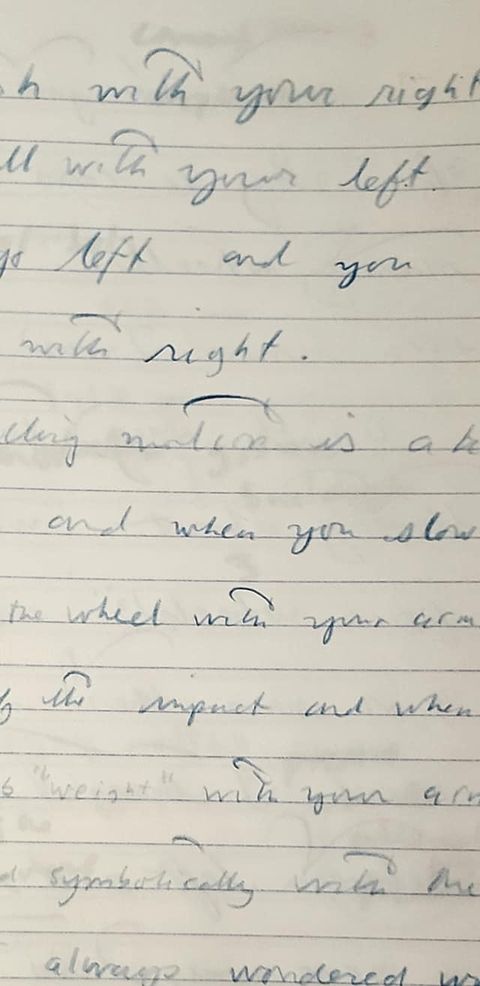 with your right
ll with your left.
go left and you
with right.
motion is a
and when you slow
the wheel with your arm
the impact and when
"weight" with your arm
symbolically with the
always wondered